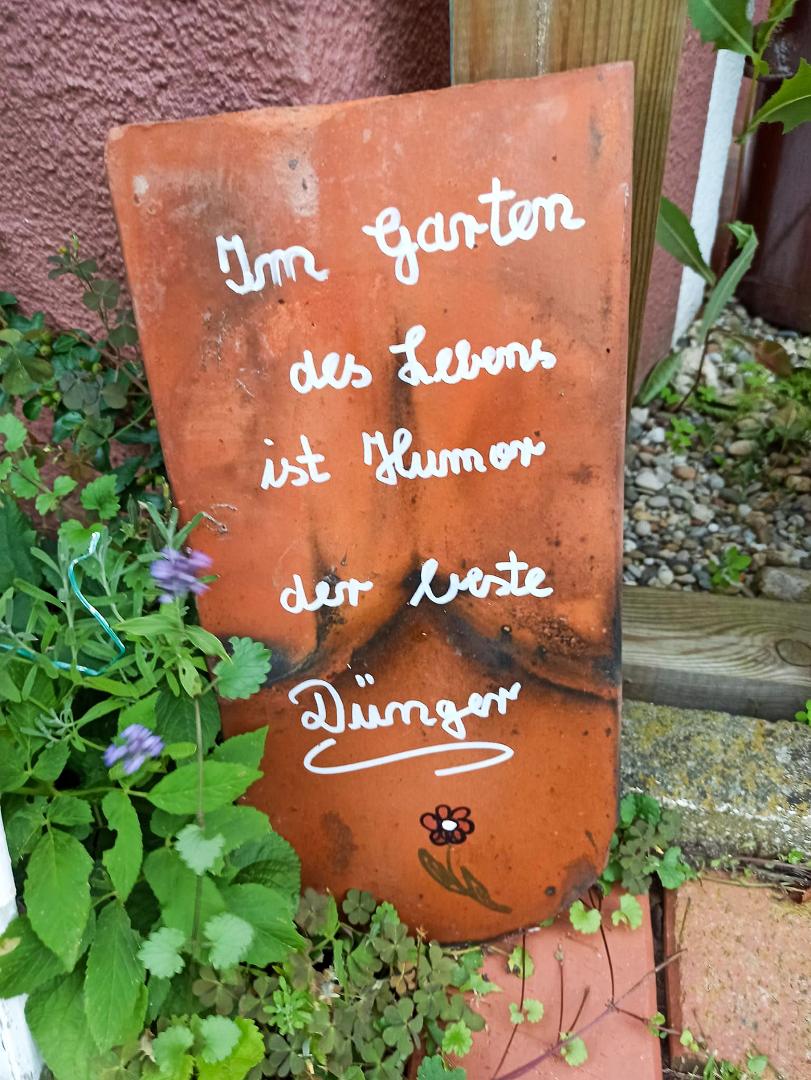 Im Garten
des Lebens
ist Humor
der beste
Dünger